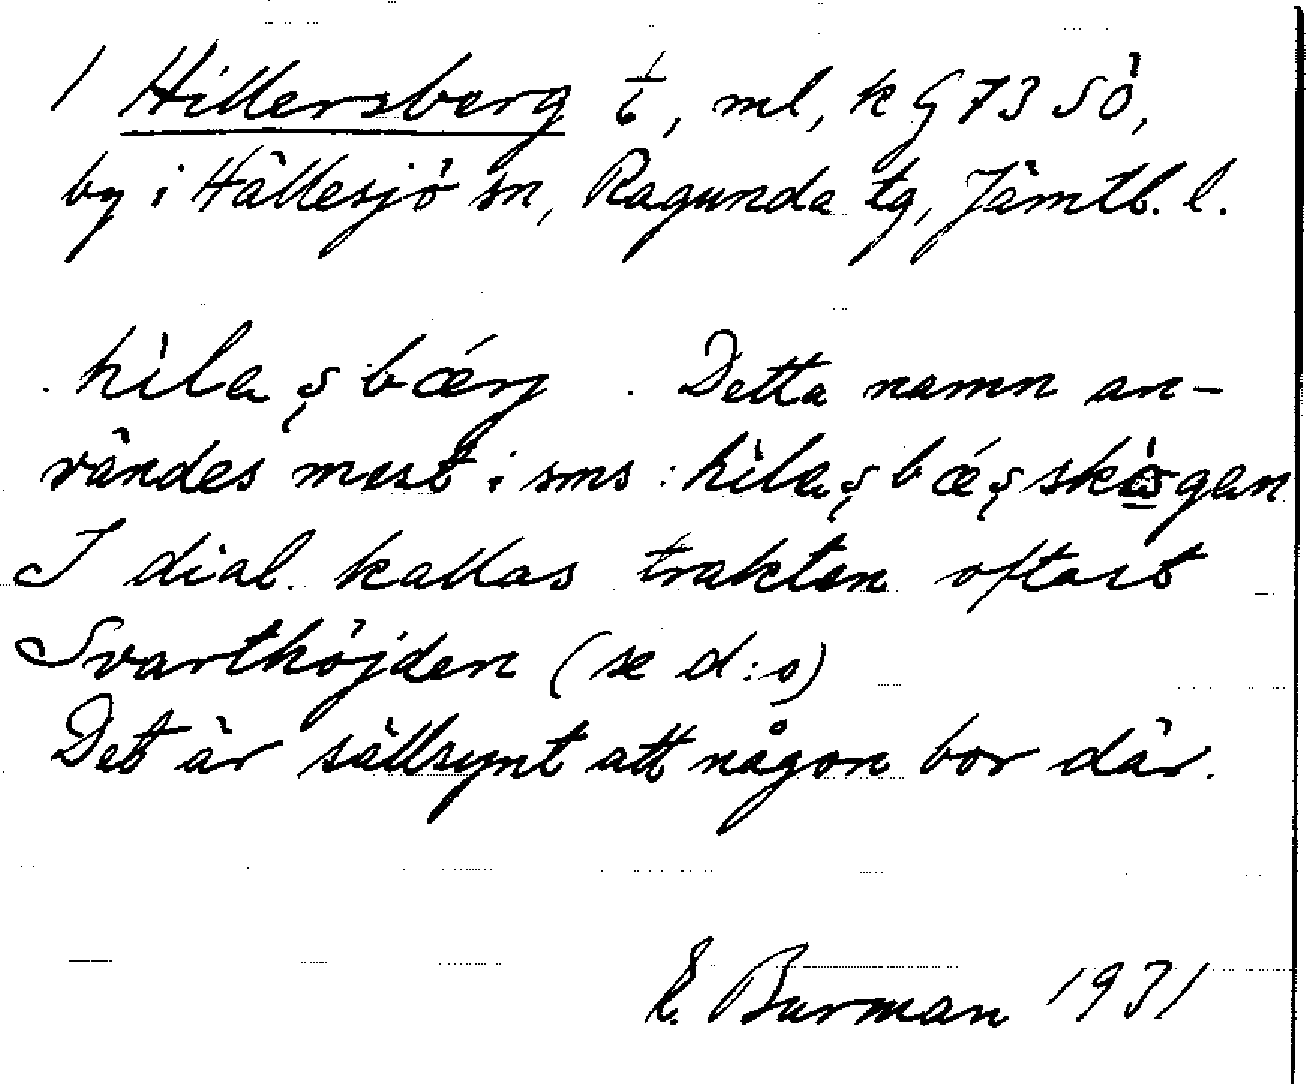 1 Hillersberg 1/6, ml, k G 73 SÖ,
by i Hällesjö sn, Ragunda tg, Jämtl. l.
hìlaʂbǽrj. Detta namn an-
vändes mest i sms: hìlaʂbǽʂskògan
I dial. kallas trakten oftast
Svarthöjden (se d:o)
Det är sällsynt att någon bor där.
E. Burman 1931